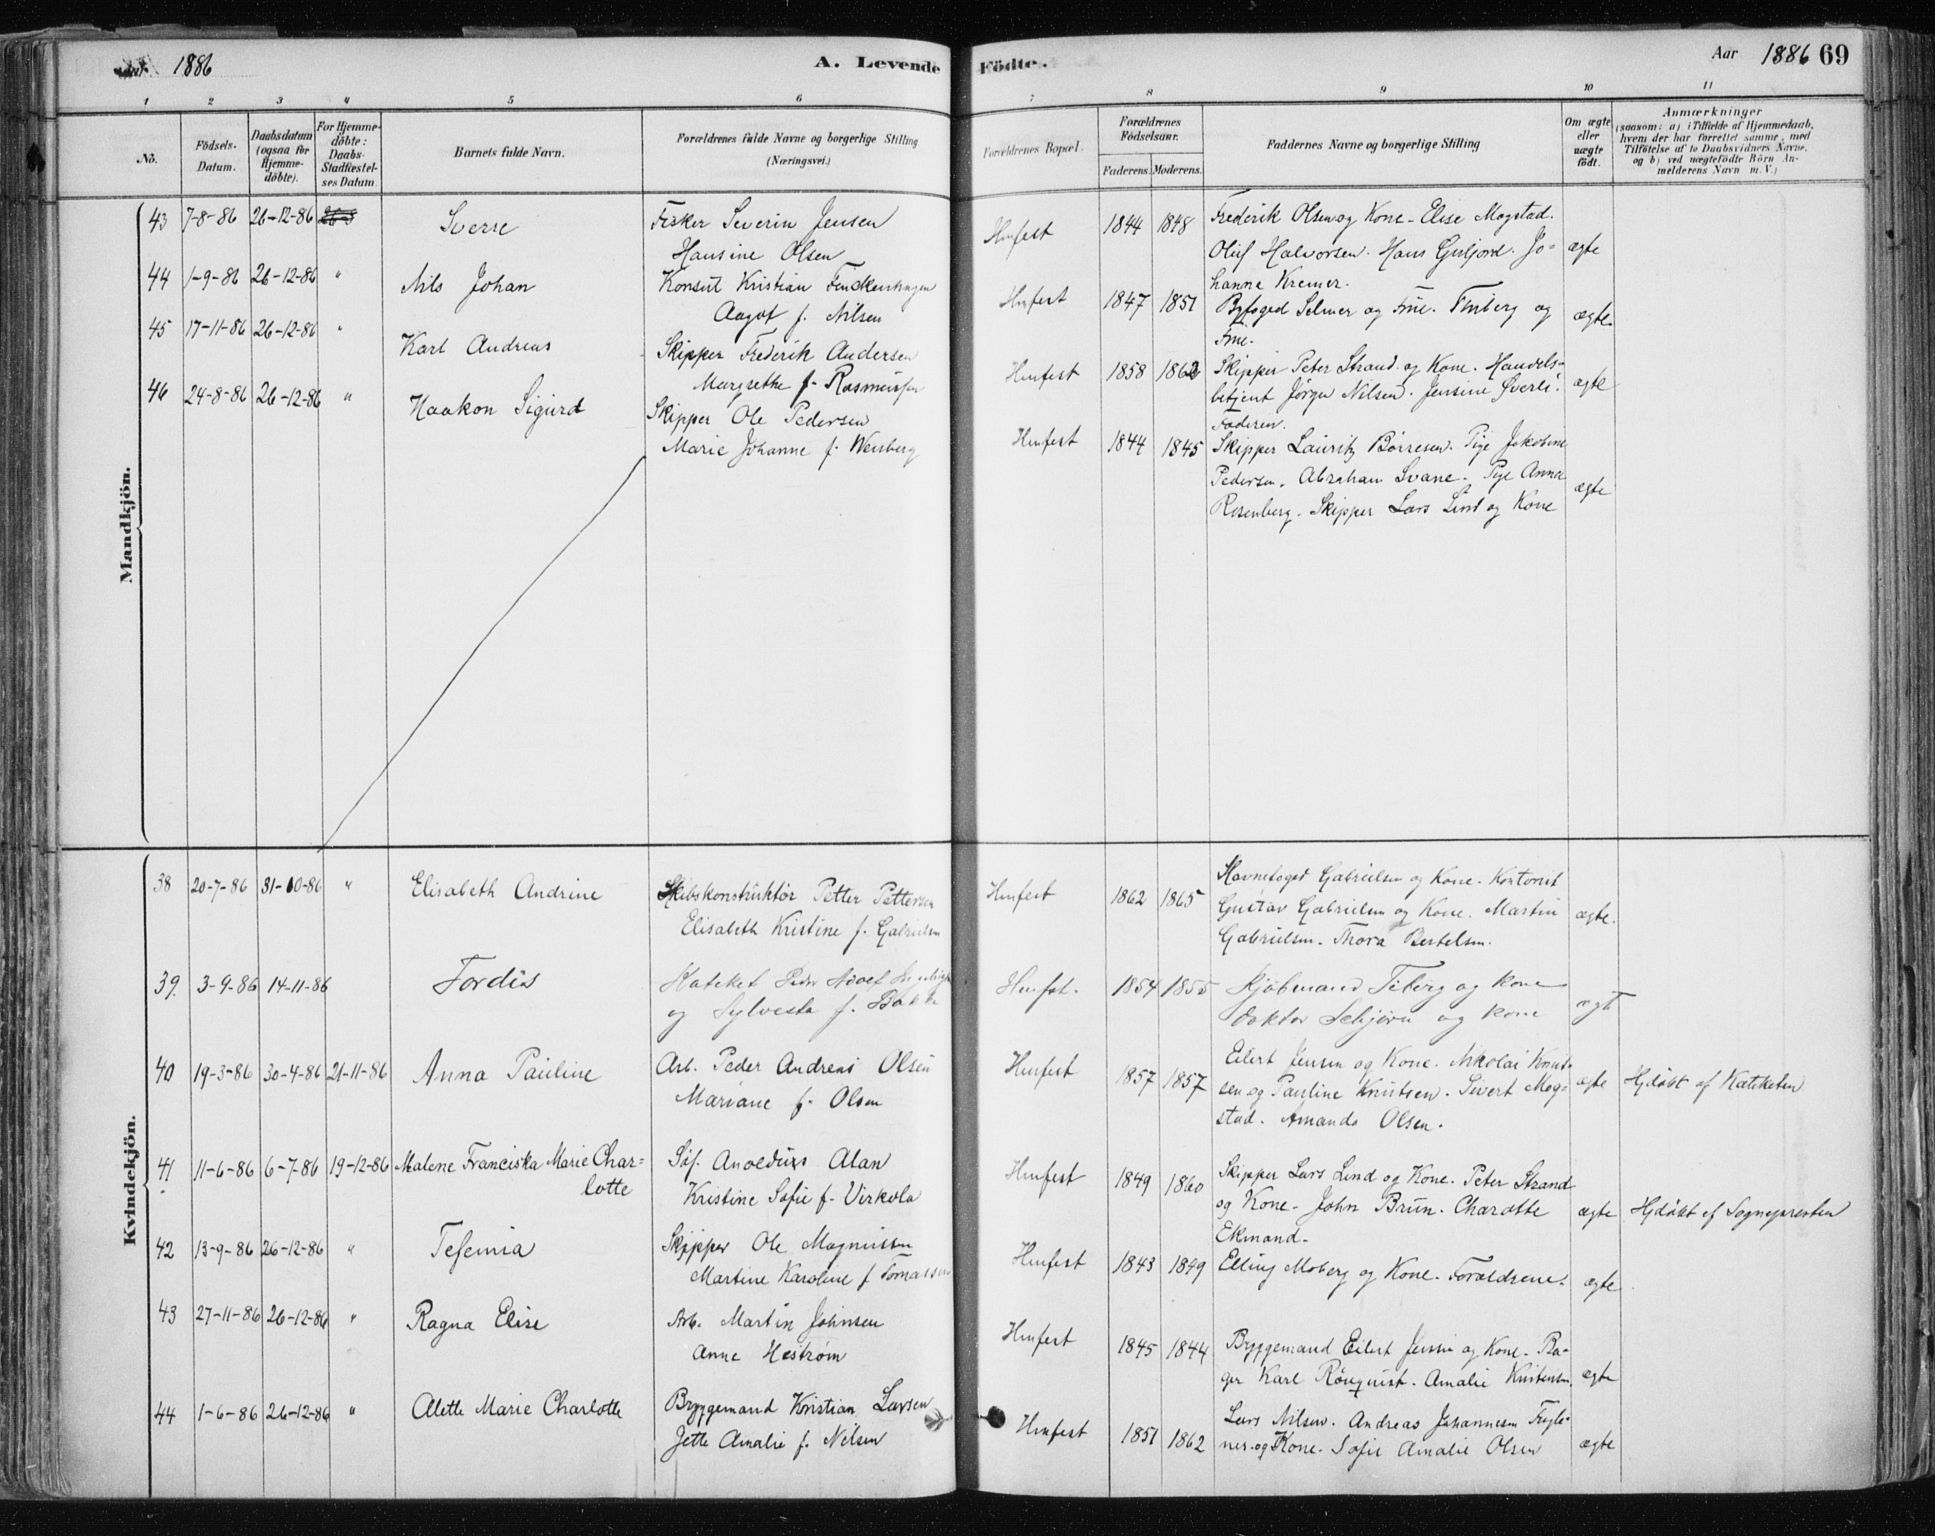 Aar 1886
A. Levende Födte.
Aar 1886 69
1 2 3 4 5 6 7 8 9 10 11
No.
Födsels-Datum.
Daabsdatum (ogsaa for Hjemme-döbte).
For Hjemme-döbte: Daabs-Stadfæstel-ses Datum.
Barnets fulde Navn.
Forældrenes fulde Navne og borgerlige Stilling (Næringsvei.)
Forældrenes Bopæl.
Forældrenes Födselsaar.
Faderens. Moderens.
Faddernes Navne og borgerlige Stilling
Om ægte eller uægte födt.
Anmærkninger
(saasom: a) i Tilfælde af Hjemmedaab,
hvem der har forrettet samme, med
Tilföielse af to Daabsvidners Navne,
og b) ved uægtefödte Börn An-
melderens Navn m. V.)
Mandkjön.
43 7-8-86 26-12-86 Sverre Fisker Severin Jensen
Hansine Olsen
Hmfest 1844 1848 Frederik Olsen og Kone. Elise Mogstad.
Oluf Halvorsen. Hans Gulfjord. Jo=
hanna Kremer.
ægte
44 1-9-86 26-12-86 " Nils Johan Konsul Kristian Finckenhagen
Aagot f. Nilsen
Hmfest 1847 1851 Byfoged Selmer og Frue. Finberg og
Frue.
ægte
45 17-11-86 26-12-86 " Karl Andreas Skipper Frederik Andersen
Margrethe f. Rasmussen
Hmfest 1858 1862 Skipper Peter Strand og Kone. Handels=
betjent Jørgen Nilsen. Jensine Sverli.
Faderen.
ægte
46 24-8-86 26-12-86 " Haakon Sigurd Skipper Ole Pedersen
Marie Johanne f. Wensberg
Hmfest 1844 1845 Skipper Lauritz Børresen. Pige Jakobine
Pedersen. Abraham Svane. Pige Anna
Rosenberg. Skipper Lars Lind og Kone
ægte
Kvindekjön.
38 20-7-86 31-10-86 " Elisabeth Andrine Skibskonstruktør Petter Pettersen
Elisabeth Kristine f. Gabrielsen
Hmfest 1862 1865 Havnefoged Gabrielsen og Kone. Kontorist
Gustav Gabrielsen og Kone. Martin
Gabrielsen. Thora Bertelsen.
ægte.
39. 3-9-86 14-11-86 Tordis Kateket Peder Adolf
og Sylvesta f. Bakke
Hmfst. 1854 1855 Kjøbmand Fiberg og kone
doktor Schjørn og kone
ægt
40 19-3-86 30-4-86 21-11-86 Anna Pauline Arb. Peder Andreas Olsen
Mariane f. Olsen
Hmfest 1857 1857 Eilert Jensen og Kone. Nikolai Knut=
sen og Pauline Knutsen. Sivert Mog=
stad. Amanda Olsen.
ægte Hjdøbt af Kateketen
41 11-6-86 6-7-86 19-12-86 Malene Franciska Marie Char=
lotte
Søf. Anoldius Alan
Kristine Sofie f. Virkola
Hmfest 1849 1860 Skipper Lars Lind og Kone. Peter Strand
og Kone. John Brun. Charotte
Ekmand.
ægte Hjdøbt af Sognepresten
42 13-9-86 26-12-86 " Tefemia Skipper Ole Magnussen
Martine Karoline f. Tomassen
Hmfest 1843 1849 Elling Moberg og Kone. Forældrene.
ægte
43 27-11-86 26-12-86 " Ragna Elise Arb. Martin Johnsen
Anne Hestrøm
Hmfest 1845 1844 Bryggemand Eilert Jensen og Kone. Ba=
ger Karl Rönquist. Amalie Kristensen.
ægte
44 1-6-86 26-12-86 " Alette Marie Charlotte Bryggemand Kristian Larsen
Jette Amalie f. Nilsen
Hmfest 1851 1862 Lars Nilsen. Andreas Johannesen Fugle=
nes og Kone. Sofie Amalie Olsen
ægte